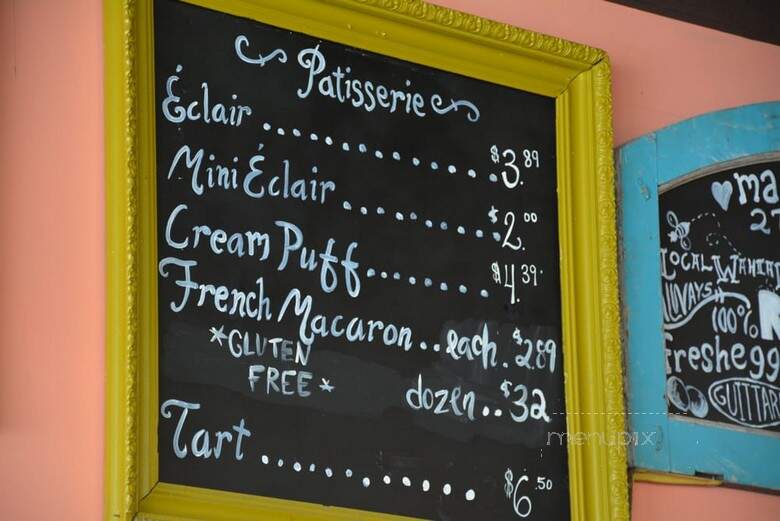 Patisserie
Éclair ............ $3.89
Mini Éclair ............ $2.00
Cream Puff ......... $4.39
French Macaron .. each. $2.89
*GLUTEN
FREE*
dozen .. $32
Tart .............. $6.50
menupix
ma
LOCAL
100%
Freshegg
GUITTAR